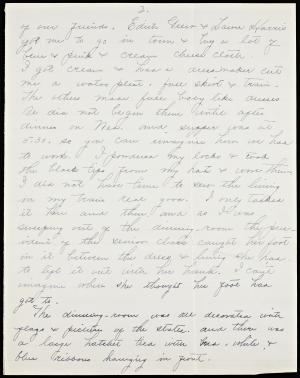 2.
of our friends. Edith Greer & Laura Harris
got me to go in town & buy a lot of
blue & pink & cream cheese cloth.
I got cream & had a dressmaker cut
me a watteau pleat, full skirt & train.
The others made fancy baby like dresses
We did not begin them until after
dinner on Wed. and supper was at
5:30. so you can imagine how we had
to work. I powdered my locks & took
the black tips from my hat & wore them
I did not have time to sew the lining
in my train real good. I only tacked
it here and there and as I was
sweeping out of the dining-room the pres-
ident of the senior class caught her foot
in it between the dress & lining she had
to lift it out with her hands. I can't
imagine where she thought her foot had
got to.
The dining-room was all decorated with
flags & pictures of the states. and there was
a large hatchet tied with red-white &
blue ribbons hanging in front.